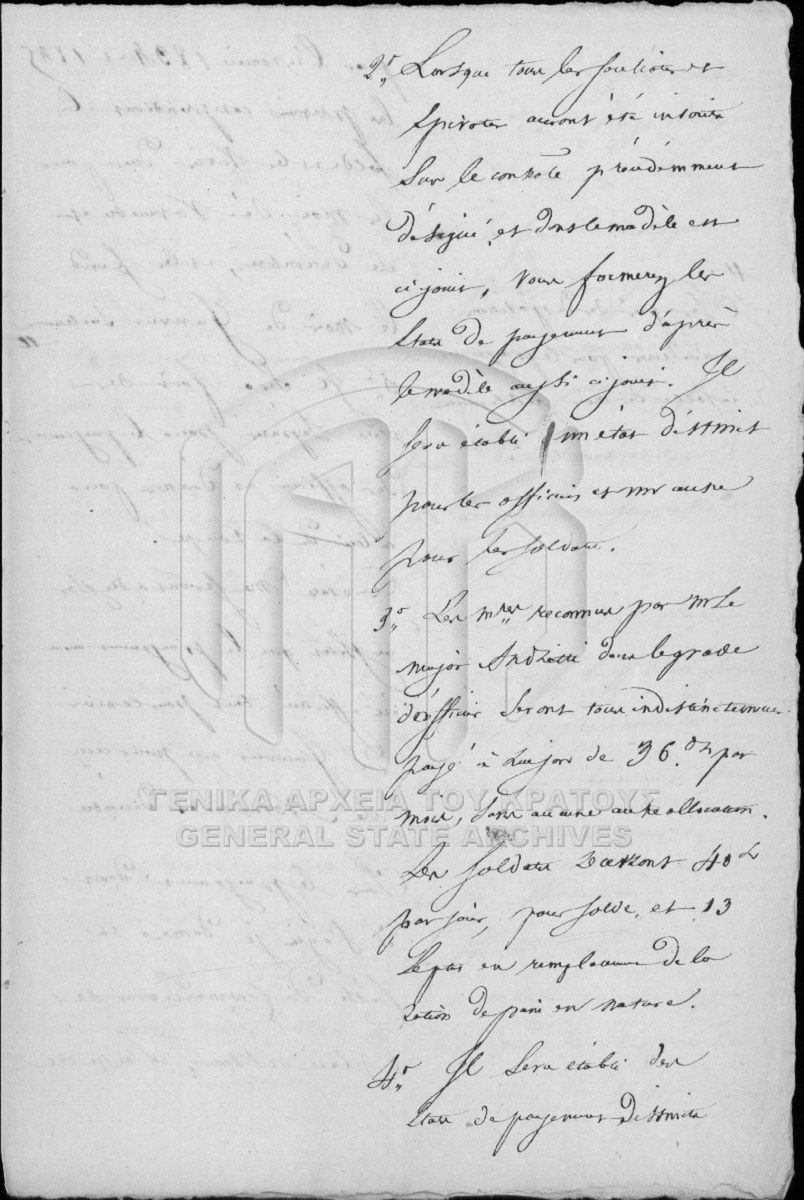 2° Lorsque tous les Souliotes et
Epirotes auront été inscrits
Sur le contrôle précédemment
désigné, et dont le modèle est
ci joint, vous formerez les
Etats de payement d'après
le modèle aussi ci joint. Il
Sera établi un état distinct
pour les officiers et un autre
pour les soldats.
3° Les Mrs reconnus par Mr Le
major Andrietti dans le grade
d'officier seront tous indistinctement
payé à de 36 dr par
mois, sans aucune autre allocation.
ΓΕΝΙΚΑ ΑΡΧΕΙΑ ΤΟΥ ΚΡΑΤΟΥΣ
GENERAL STATE ARCHIVES
Les Soldats recevront 40 L
par jour, pour solde, et 13
Lepas en remplacement de la
ration de pain en nature.
4° Il Sera établi des
Etats de payement distincts